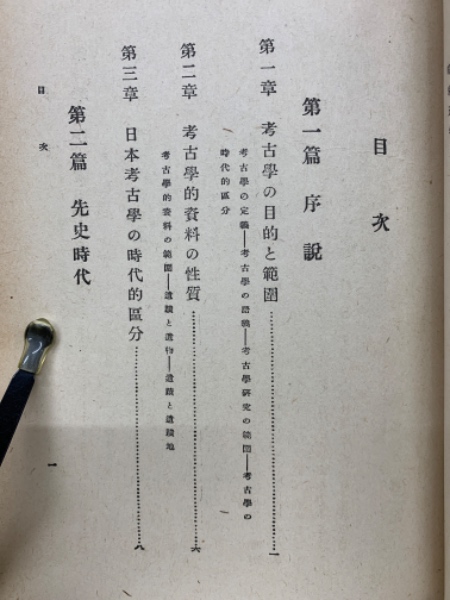 目次
第一篇 序説
第一章 考古學の目的と範圍……一
考古學の定義――考古學の語義――考古學研究の範圍――考古學の
時代的區分
第二章 考古學的資料の性質……六
考古學的資料の範圍――遺蹟と遺物――遺蹟と遺蹟地
第三章 日本考古學の時代的區分……八
第二篇 先史時代
目次
一